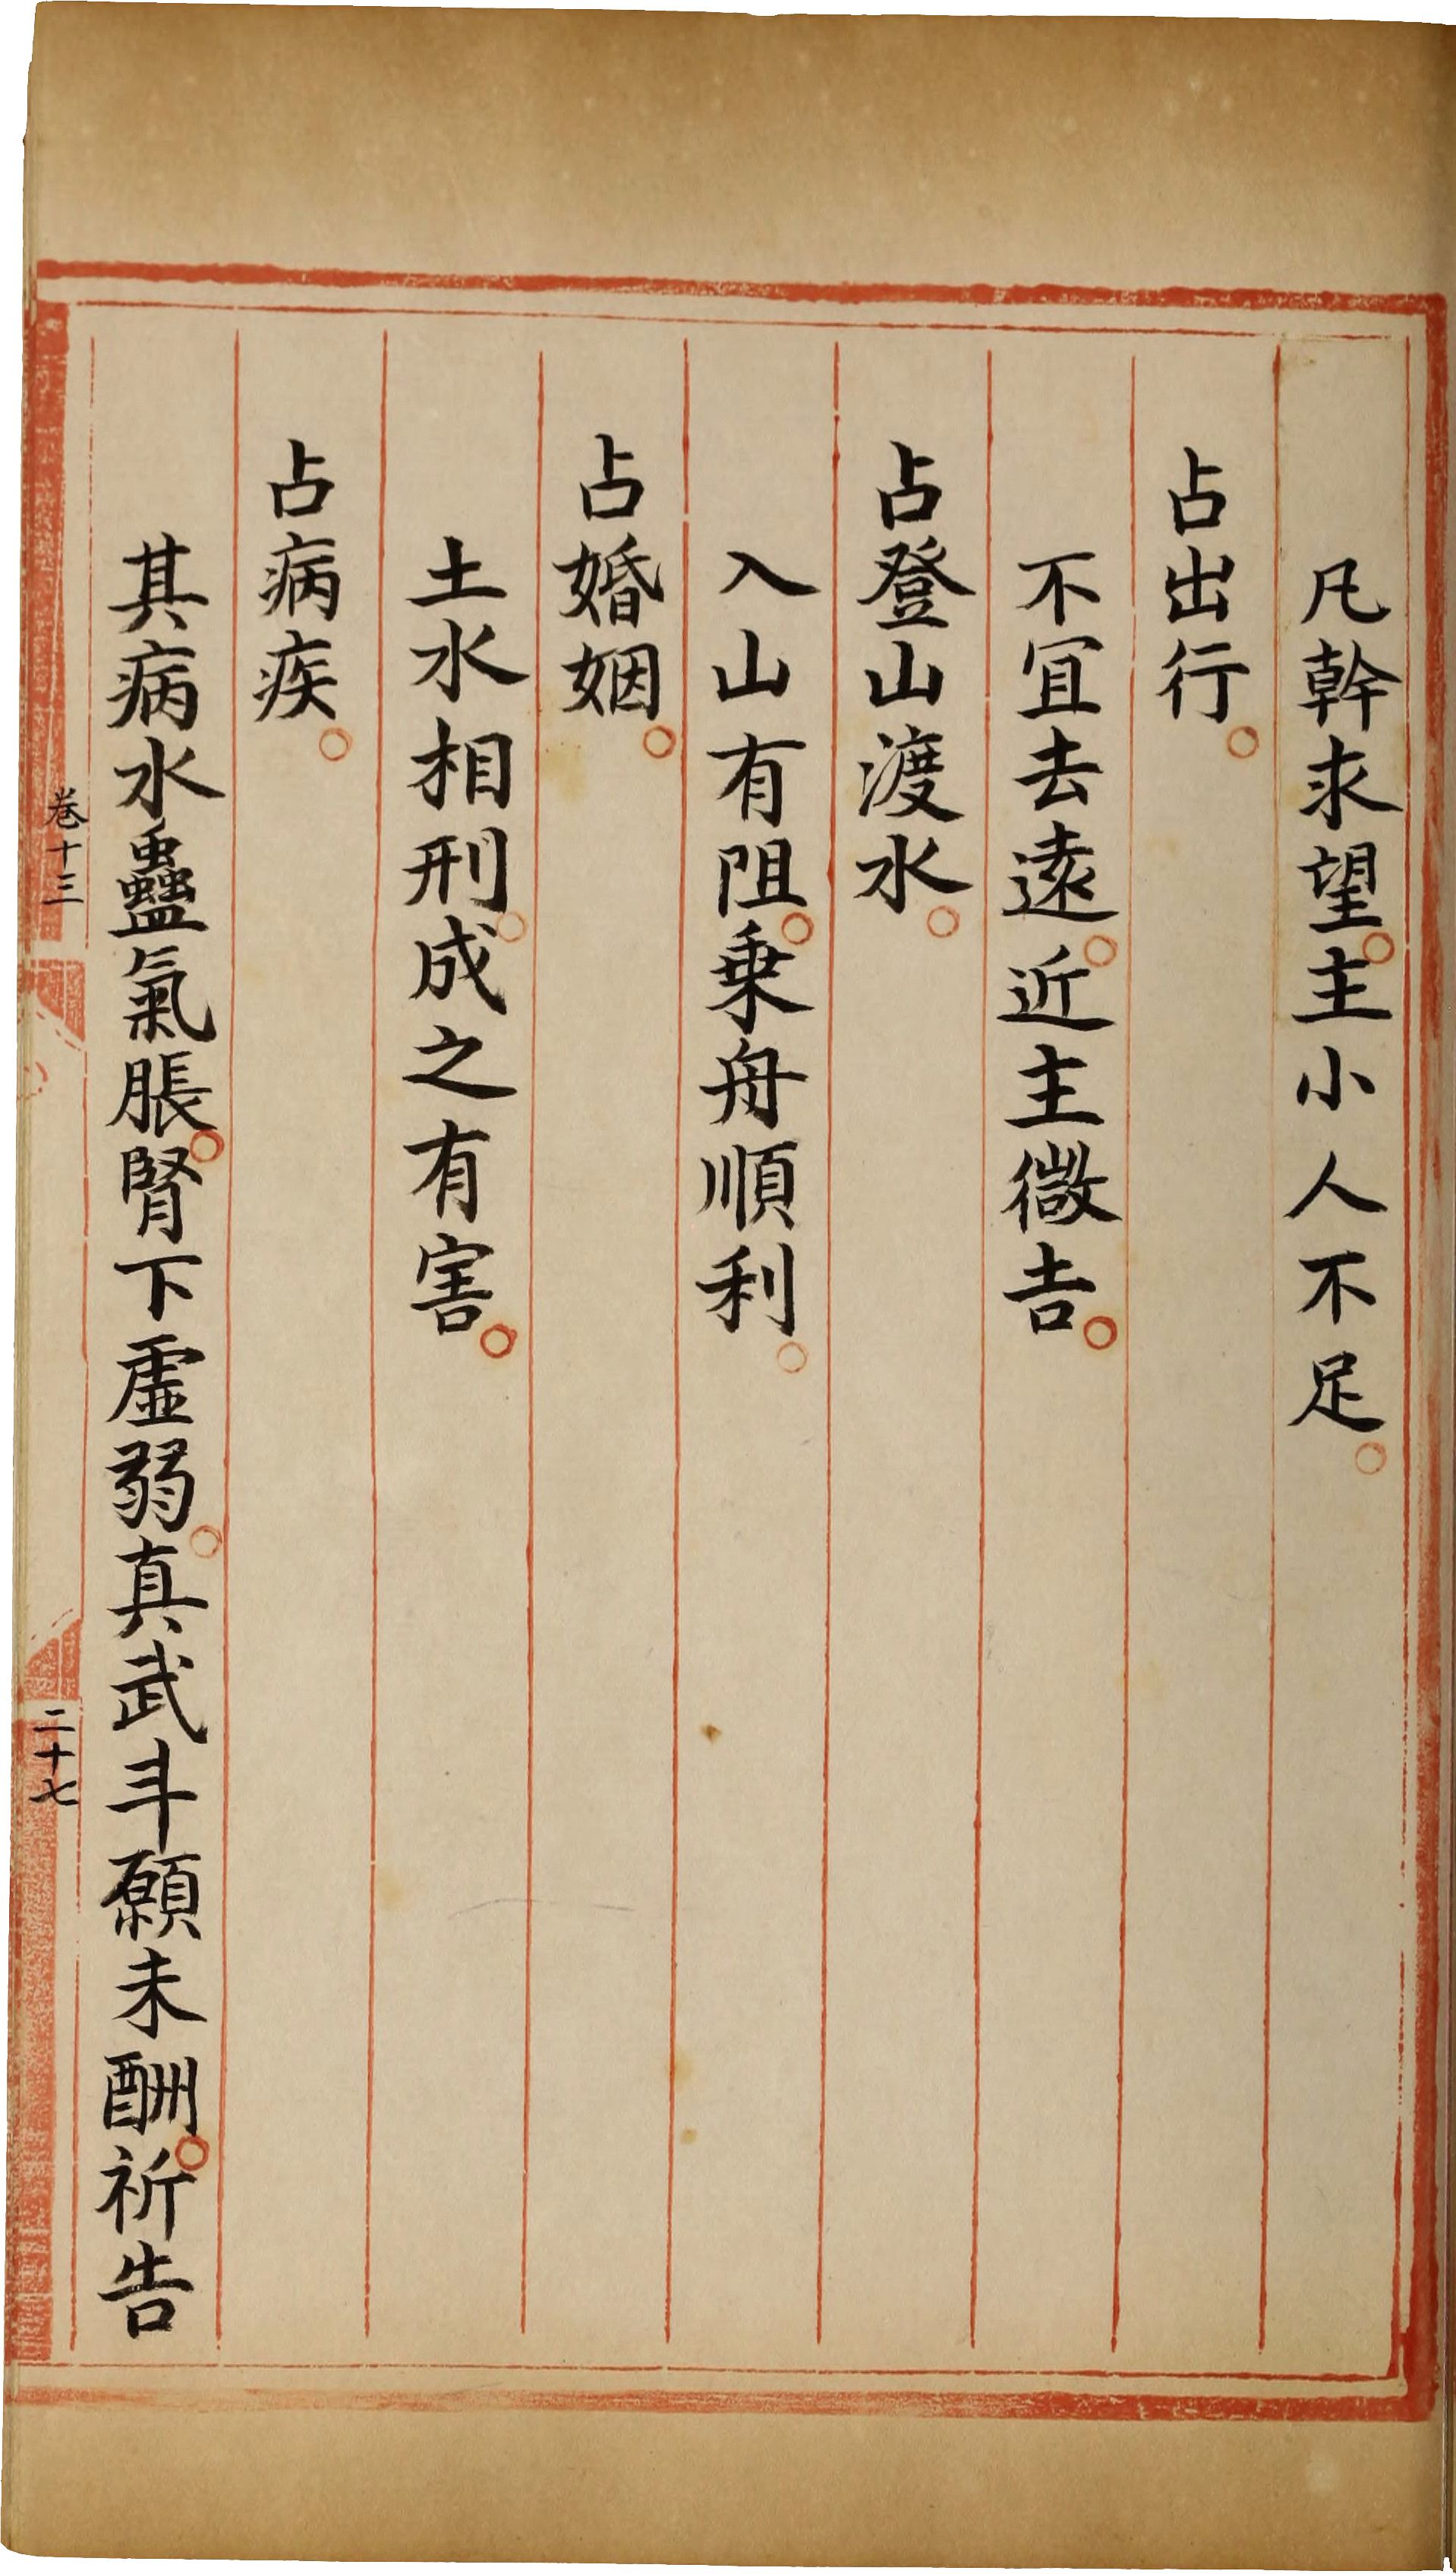 凡幹求望。主小人不足。
占出行。
不宜去遠。近主微吉。
占登山渡水。
入山有阻。乗舟順利。
占婚姻。
土水相刑。成之有害。
占病疾。
其病水蠱氣脹。腎下虛弱。真武斗願未酬。祈告
卷十三
二十七